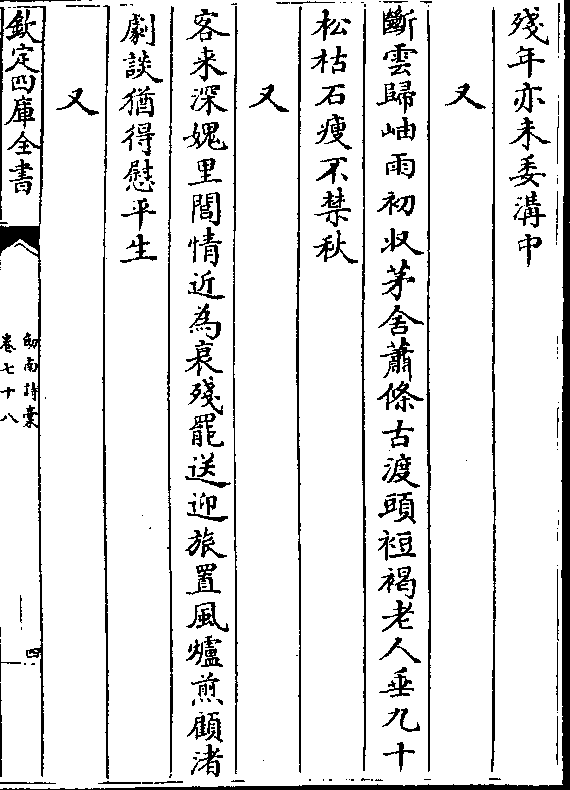 殘年亦未委溝中
又
斷雲歸岫雨初收茅舍蕭條古渡頭裋褐老人垂九十
松枯石瘦不禁秋
又
客来深媿里閭情近為衰殘罷送迎旅置風爐煎顧渚
劇談猶得慰平生
又
欽定四庫全書
劒南詩稾
卷七十八
四